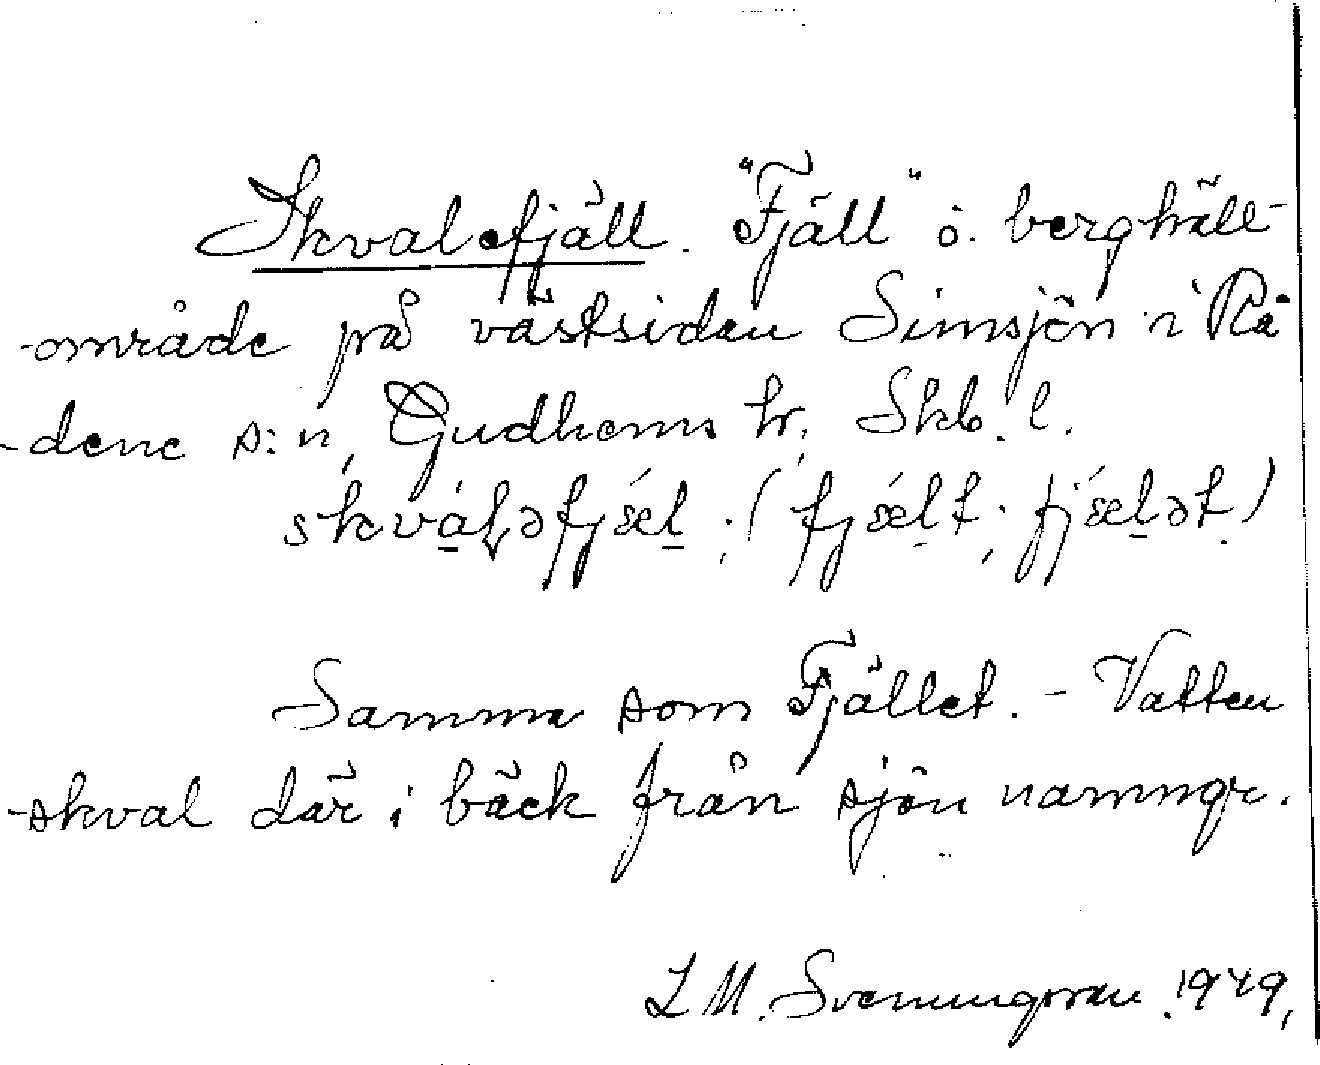 Skvalefjäll. "Fjäll" o. berghäll-
-område på västsidan Simsjön i Rå
-dene s:n, Gudhems hr, Skb. l.
skvál̥əfjæ̀l ; ( fjǽlt ; fjǽlət )
Samma som Fjället. - Vatten
-skval där i bäck från sjön namngr.
L M. Svenungsson. 1949,